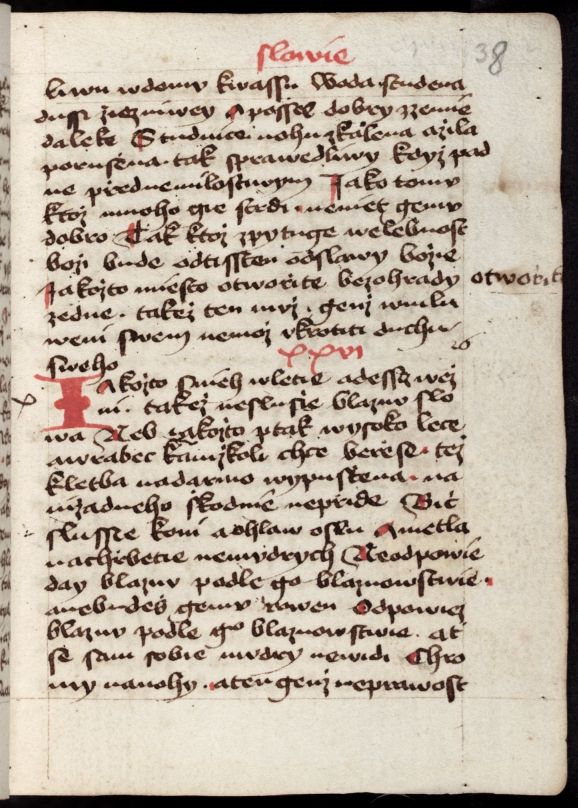 slowie
38
liwu w domu kwassu Woda studena
dussi žieznivey A possel dobry zzemie
daleke Studnice nohu zkalena a zila
porussena tak sprawedliwy kdyz pad
ne przed nemilostiwym Jako tomu
ktoz mnoho gie strdi nemiet gemu
dobro Tak ktoz zpytuge welebnost
bozi bude odtisstien od slawy bozie
Jakozto miesto otworite bez ohrady
otworite
zedne takez ten muz genz w mlu
weni swem nemoz vkrotiti duchu
sweho
xxvi
26
Jakozto snieh w letie a dessz w ez
ni takez neslusie blaznu slo
wa Neb yakozto ptak wysoko lece
a wrabec kamzkoli chce berese tez
kletba nadarmo wypustena na
nizadneho skodnie nepride Bic
slussie koni a ohlaw oslu A metla
na chrbetie nemudrych Neodpowie
day blaznu podle geho blaznowstwie
ane budes gemu rowen Odpowiez
blaznu podle geho blaznowstwie at
se sam sobie mudry newidi Chro
my na nohy a ten genz neprawost